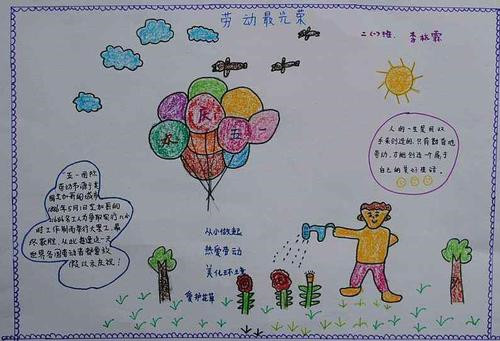 劳动最光荣
二(一)班 李
庆
五一
人的一生是用双
手来创造的,只有勤奋地
劳动,才能创造一个属于
自己的美好生活。
五一国际
劳动节源于美
国芝加哥的
1886年5月1日芝加哥的
工人为争取实行八小
时工作制而举行大罢工,最
终获胜,从此每逢这一天
世界各国劳动者都要放
假以示庆祝!
从小做起
热爱劳动
美化环境
爱护花草